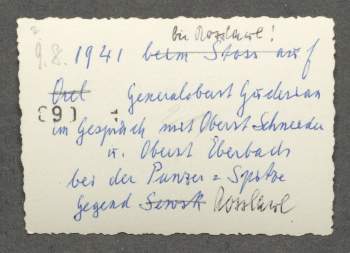 bei Rosslawl!
9.8.1941 beim Stoss auf
Orel Generaloberst Guderian
im Gespräch mit Oberst Schneider
u. Oberst Eberbach
bei der Panzer=Spitze
Gegend Sewsk Rosslawl